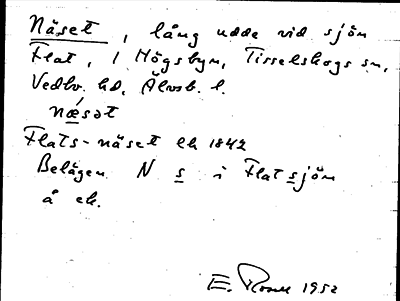 Näset, lång udde vid sjön
Flat, i Högsbyn, Tisselskogs sn,
Vedbo hd, Älvsb. l.
næ̀sət
Flats-näset ek 1842
Belägen N s i Flatsjön
å ek.
E. Rosell 1952